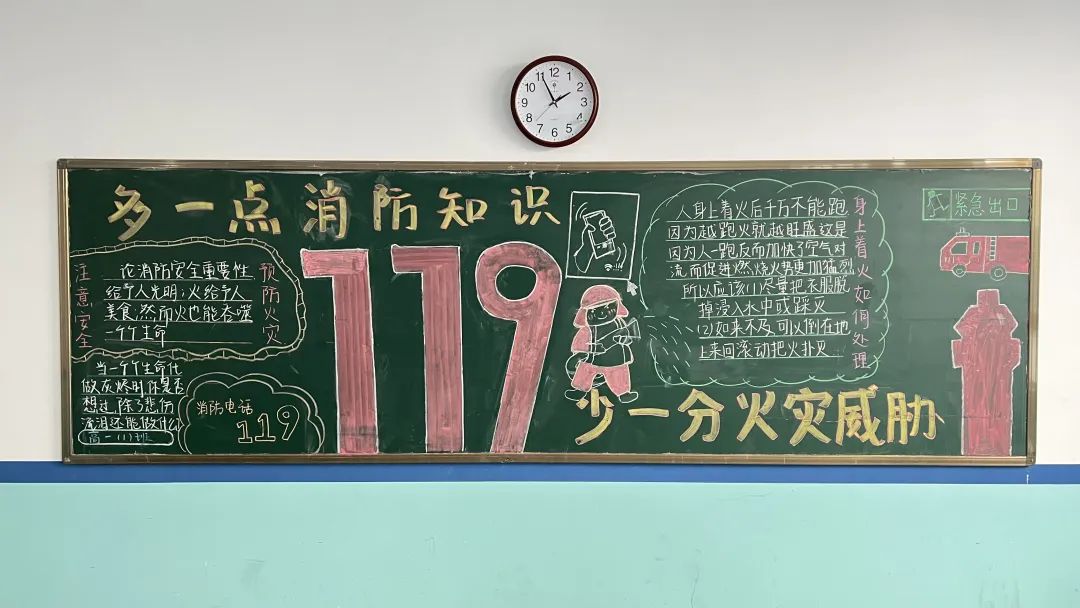 12
1
2
3
4
5
6
7
8
9
10
11
多一点消防知识
119
注意安全
论消防安全重要性
给予人光明;火给予人
美食;然而火也能吞噬
一个个生命
预防火灾
当一个个生命化
做灰烬时你是否
想过,除了悲伤
流泪还能做什么
高一(1)班
消防电话
119
人身上着火后千万不能跑
因为越跑火就越旺盛这是
因为人一跑反而加快了空气对
流而促进燃烧火势更加猛烈
所以应该(1)尽量把衣服脱
掉浸入水中或踩灭
(2)如来不及,可以倒在地
上来回滚动把火扑灭
身上着火如何处理
紧急出口
少一分火灾威胁